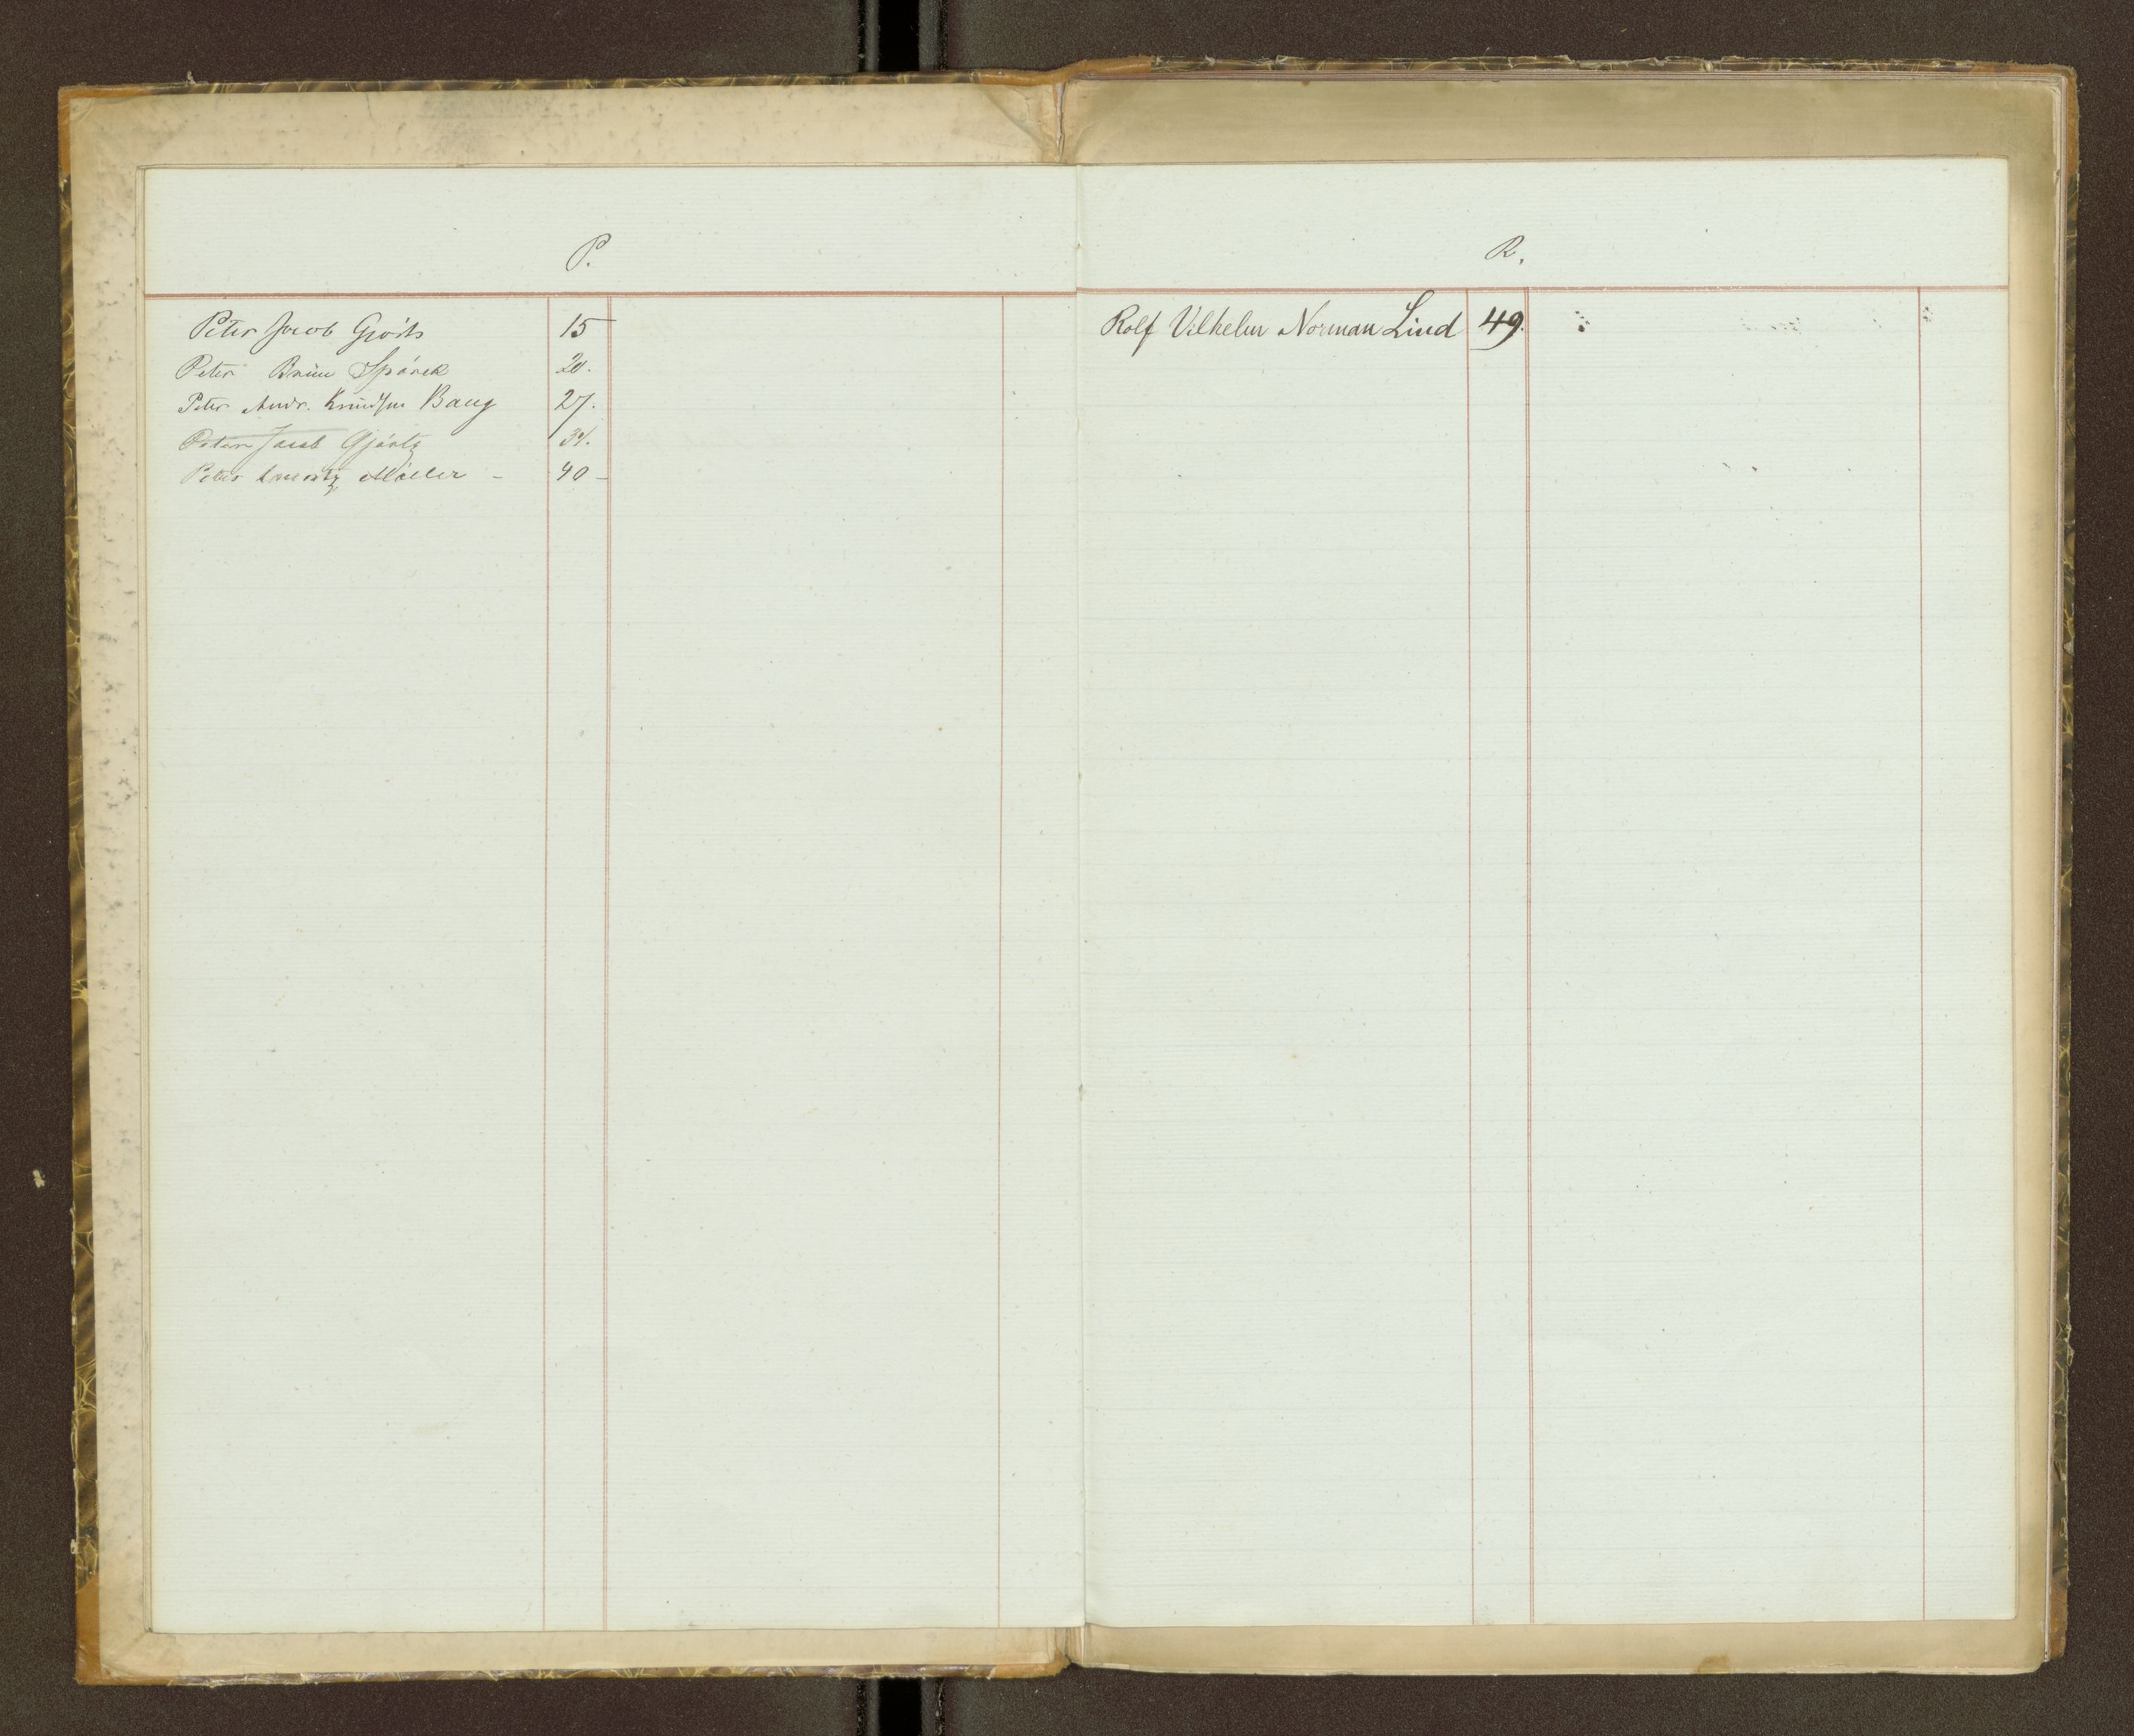 P.
Peter Jacob Gjörts 15
Peter Bruun Spärck 20.
Peter Andr. Knudsen Bang 27.
Peter Jacob Gjörtz 34.
Peter Lauritz Möller - 40 -
R.
Rolf Vilhelm Norman Lind 49.